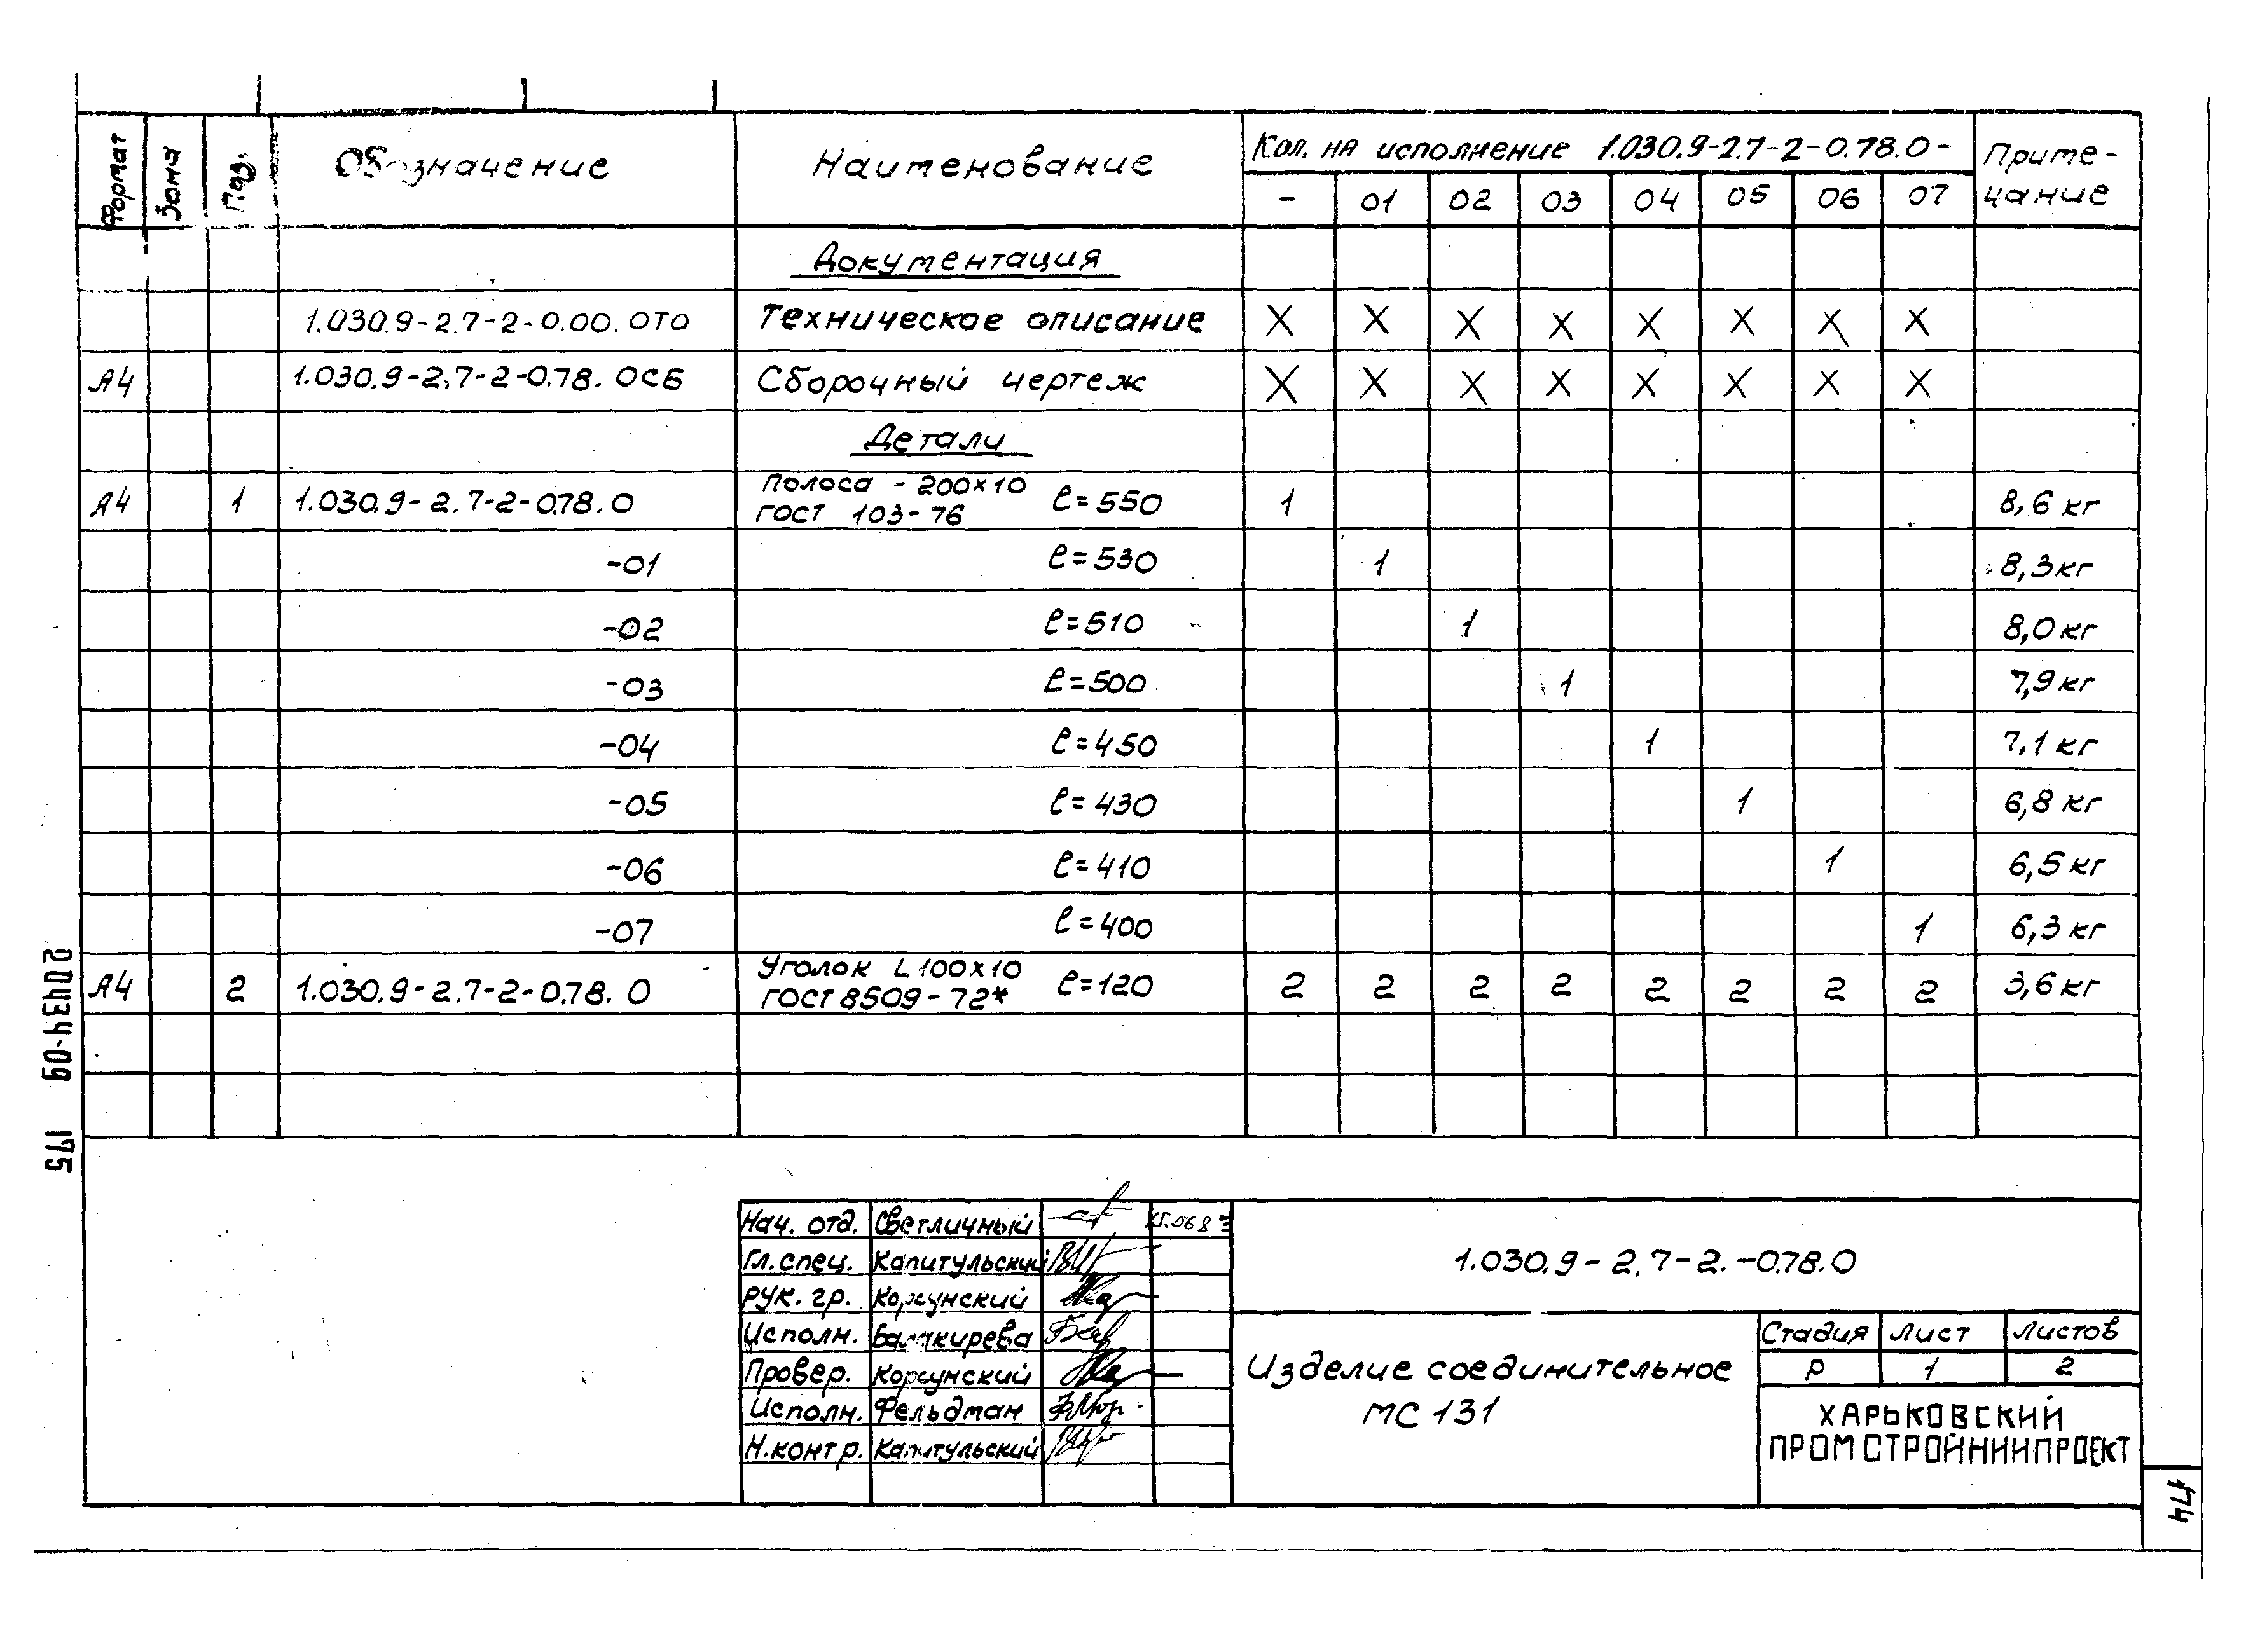 Формат Зона Поз. Обозначение Наименование Кол. на исполнение 1.030.9-2.7-2-0.78.0- Примечание
- 01 02 03 04 05 06 07
Документация
1.030.9-2.7-2-0.00.0ТО Техническое описание X X X X X X X X
А4 1.030.9-2.7-2-0.78.0СБ Сборочный чертеж X X X X X X X X
Детали
А4 1 1.030.9-2.7-2-0.78.0 Полоса -200×10 ГОСТ 103-76 ℓ=550 1 8,6 кг
-01 ℓ=530 1 8,3 кг
-02 ℓ=510 1 8,0 кг
-03 ℓ=500 1 7,9 кг
-04 ℓ=450 1 7,1 кг
-05 ℓ=430 1 6,8 кг
-06 ℓ=410 1 6,5 кг
-07 ℓ=400 1 6,3 кг
А4 2 1.030.9-2.7-2-0.78.0 Уголок L100×10 ГОСТ 8509-72* ℓ=120 2 2 2 2 2 2 2 2 3,6 кг
20434-09 175
Нач. отд. Светличный
Гл. спец. Капитульский
Рук. гр. Корсунский
Исполн. Балакирева
Провер. Корсунский
Исполн. Фельдман
Н.контр. Капитульский
1.030.9-2.7-2.-0.78.0
Изделие соединительное
МС 131
Стадия Лист Листов
Р 1 2
ХАРЬКОВСКИЙ
ПРОМСТРОЙНИИПРОЕКТ
174